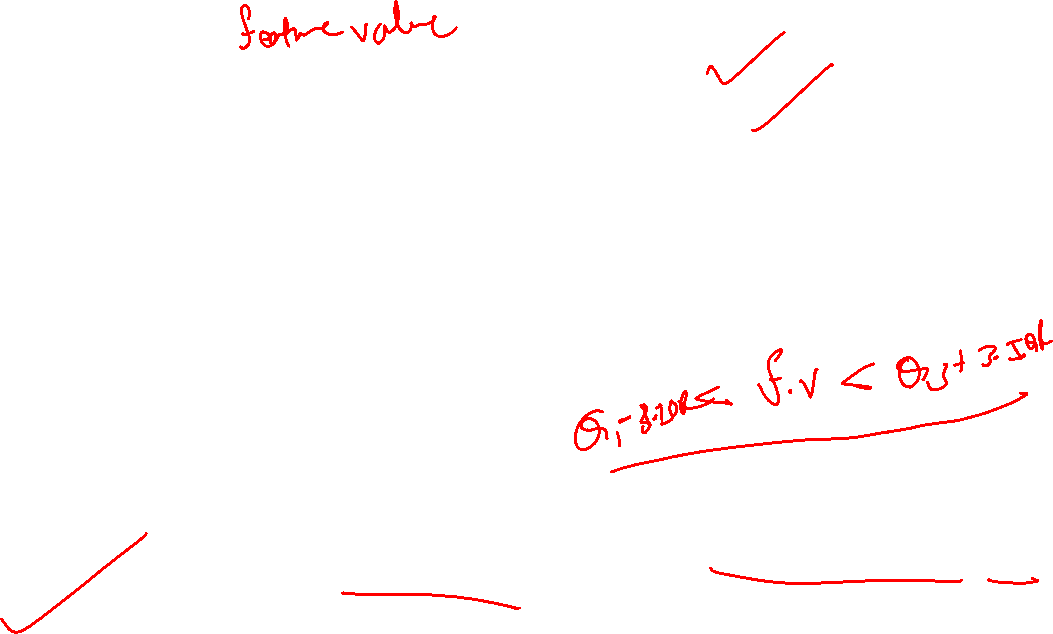 feature value
Q1 - 3.IQR < f.v < Q3 + 3.IQR